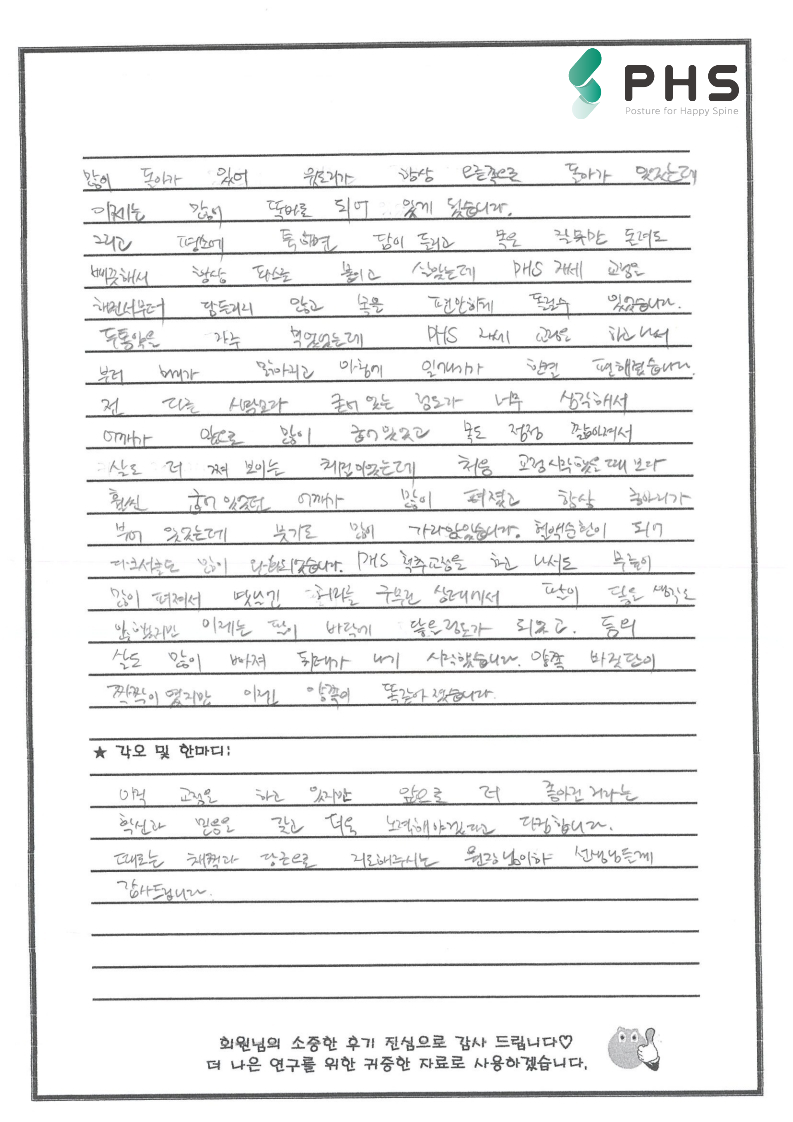 PHS
Posture for Happy Spine
많이 돌아가 있어 윗도리가 항상 오른쪽으로 돌아가 있었는데
이제는 많이 똑바로 되어 있게 됐습니다.
그리고 평소에 툭하면 담이 들리고 목은 잘못만 돌려도
삐끗해서 항상 파스는 붙이고 살았는데 PHS 자세 교정을
해면서부터 담들리지 않고 목을 편안하게 돌릴수 있었습니다.
두통약을 자주 먹었었는데 PHS 자세 교정을 하고 나서
부터 머리가 맑아지고 아침에 일어나기가 한결 편해졌습니다.
전 다른 사람보다 굽어 있는 정도가 너무 심각해서
어깨가 앞으로 많이 굽어 있었고 목도 점점 짧아져서
살도 더 쪄 보이는 체형이었는데 처음 교정시작했을 때 보다
훨씬 굽어 있었던 어깨가 많이 펴졌고 항상 종아리가
부어 있었는데 붓기도 많이 가라앉았습니다. 혈액순환이 되어
다크서클도 많이 완화되었습니다. PHS 척추교정을 하고 나서도 무릎이
많이 펴져서 옛날엔 허리를 구부린 상태에서 팔이 닿을 생각도
안했지만 이제는 팔이 바닥에 닿을정도가 되었고. 등의
살도 많이 빠져 쇠태가 나기 시작했습니다. 양쪽 바짓단이
짝짝이 였지만 이젠 양쪽이 똑같아 졌습니다.
★ 각오 및 한마디:
아직 교정을 하고 있지만 앞으로 더 좋아진 거라는
확신과 믿음을 갖고 더욱 노력해야겠다고 다짐합니다.
때로는 채찍과 당근으로 지도해주시는 원장님이하 선생님들께
감사드립니다.
회원님의 소중한 후기 진심으로 감사 드립니다♡
더 나은 연구를 위한 귀중한 자료로 사용하겠습니다.